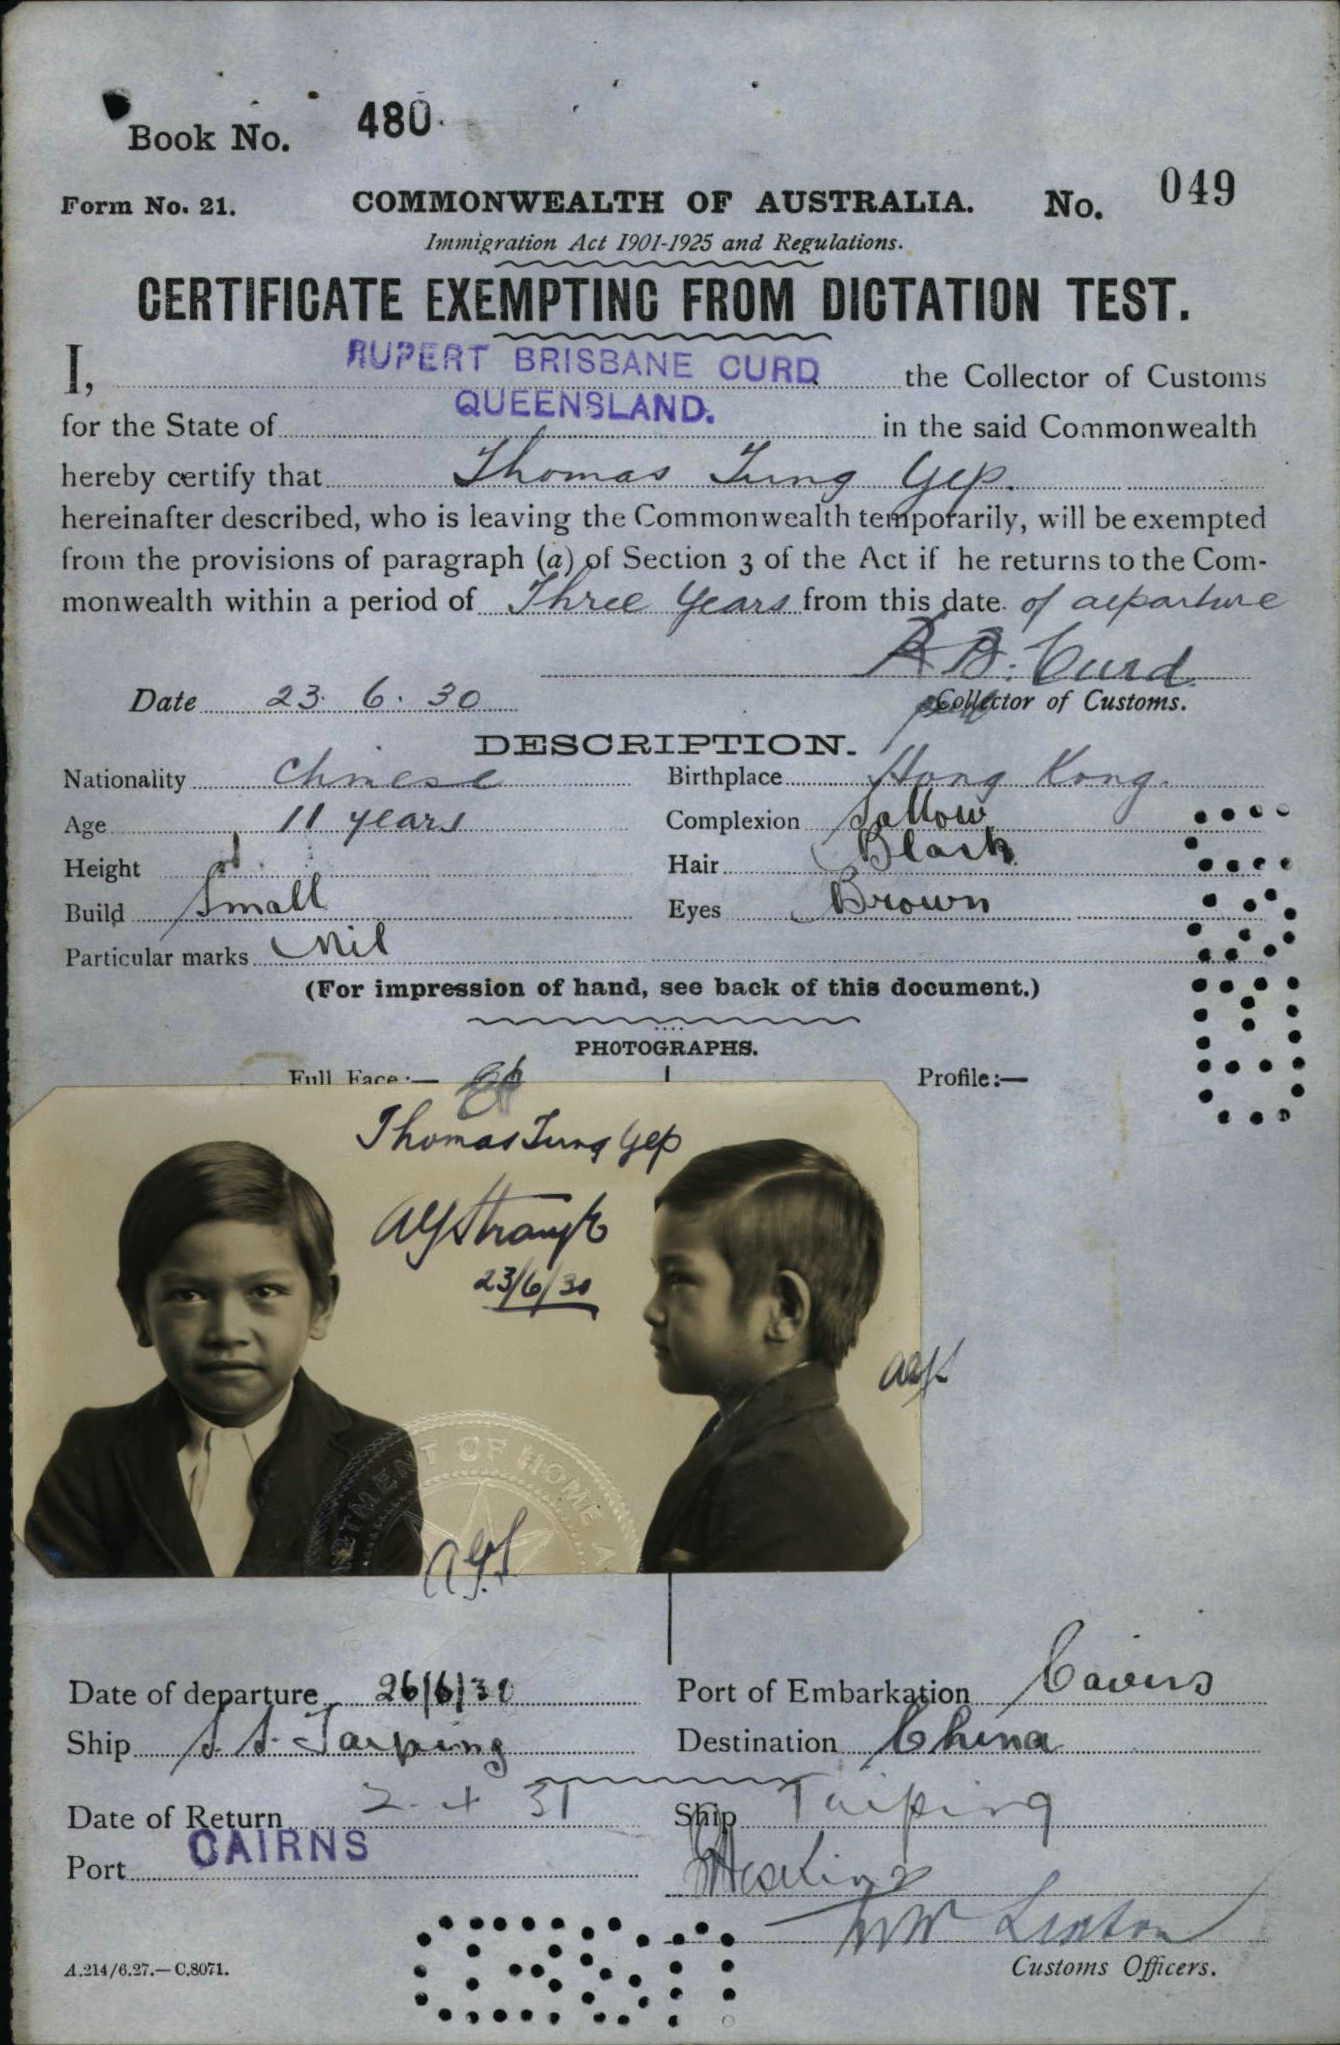 Book No. 480
Form No. 21. COMMONWEALTH OF AUSTRALIA. No. 049
Immigration Act 1901-1925 and Regulations.
CERTIFICATE EXEMPTING FROM DICTATION TEST.
I, RUPERT BRISBANE CURD the Collector of Customs
for the State of QUEENSLAND. in the said Commonwealth
hereby certify that Thomas Tung Yep.
hereinafter described, who is leaving the Commonwealth temporarily, will be exempted
from the provisions of paragraph (a) of Section 3 of the Act if he returns to the Com-
monwealth within a period of Three Years from this date of departure
R B. Curd
Date 23. 6. 30 Collector of Customs.
DESCRIPTION.
Nationality Chinese Birthplace Hong Kong.
Age 11 years Complexion Sallow
Height Hair Black
Build Small Eyes Brown
Particular marks Nil
(For impression of hand, see back of this document.)
PHOTOGRAPHS.
Full Face:— Profile:—
Thomas Tung Yep
23/6/30
Date of departure 26/6/30 Port of Embarkation Cairns
Ship S. S. Taiping Destination China
Date of Return 2. 4 31 Ship Taiping
Port CAIRNS
Linton
A.214/6.27.—C.8071. Customs Officers.